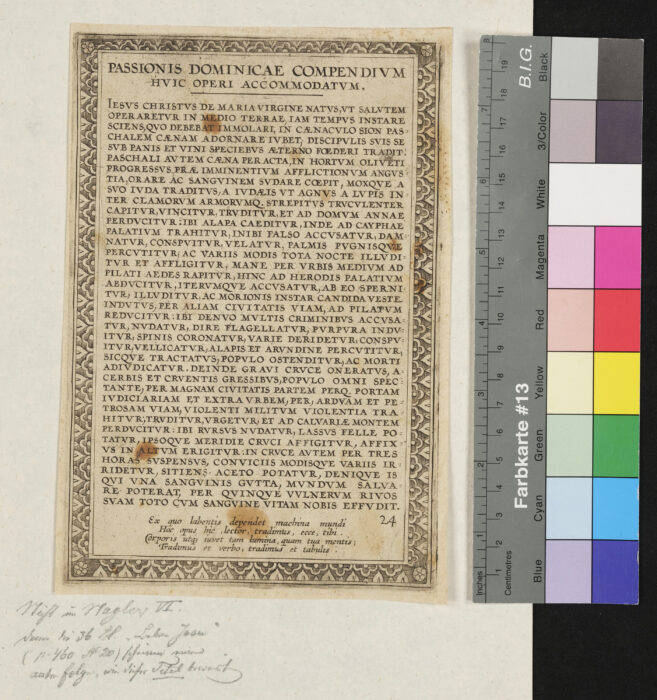 PASSIONIS DOMINICAE COMPENDIVM
HVIC OPERI ACCOMMODATVM.
IESVS CHRISTVS DE MARIA VIRGINE NATVS, VT SALVTEM
OPERARETVR IN MEDIO TERRAE, IAM TEMPVS INSTARE
SCIENS, QVO DEBEBAT IMMOLARI, IN CÆNACVLO SION PAS-
CHALEM CÆNAM ADORNARE IVBET; DISCIPVLIS SVIS SE
SVB PANIS ET VINI SPECIEBVS ÆTERNO FŒDERI TRADIT.
PASCHALI AVTEM CÆNA PERACTA, IN HORTVM OLIVETI
PROGRESSVS, PRÆ IMMINENTIVM AFFLICTIONVM ANGVS
TIA, ORARE AC SANGVINEM SVDARE CŒPIT, MOXQVE A
SVO IVDA TRADITVS, A IVDÆIS VT AGNVS A LVPIS IN-
TER CLAMOREM ARMORVMQ. STREPITVS TRVCVLENTER
CAPITVR, VINCITVR, TRVDITVR, ET AD DOMVM ANNAE
PERDVCITVR: IBI ALAPA CAEDITVR, INDE AD CAYPHAE
PALATIVM TRAHITVR, INIBI FALSO ACCVSATVR, DAM-
NATVR, CONSPVITVR, VELATVR, PALMIS PVGNISQVE
PERCVTITVR; AC VARIIS MODIS TOTA NOCTE ILLVDI-
TVR ET AFFLIGITVR, MANE PER VRBIS MEDIVM AD
PILATI AEDES RAPITVR, HINC AD HERODIS PALATIVM
ABDVCITVR, ITERVMQVE ACCVSATVR, AB EO SPERNI-
TVR; ILLVDITVR, AC MORIONIS INSTAR CANDIDA VESTE
INDVTVS, PER ALIAM CIVITATIS VIAM, AD PILATVM
REDVCITVR: IBI DENVO MVLTIS CRIMINIBVS ACCVSA-
TVR, NVDATVR, DIRE FLAGELLATVR, PVRPVRA INDV-
ITVR, SPINIS CORONATVR, VARIE DERIDETVR: CONSPV-
ITVR, VELLICATVR, ALAPIS ET ARVNDINE PERCVTITVR,
SICQVE TRACTATVS, POPVLO OSTENDITVR, AC MORTI
ADIVDICATVR. DEINDE GRAVI CRVCE ONERATVS, A-
CERBIS ET CRVENTIS GRESSIBVS, POPVLO OMNI SPEC-
TANTE, PER MAGNAM CIVITATIS PARTEM PERQ. PORTAM
IVDICIARIAM ET EXTRA VRBEM, PER, ARDVAM ET PE-
TROSAM VIAM, VIOLENTI MILITVM VIOLENTIA TRA-
HITVR, TRVDITVR, VRGETVR; ET AD CALVARIÆ MONTEM
PERDVCITVR: IBI RVRSVS NVDATVR, LASSVS FELLE PO-
TATVR, IPSOQVE MERIDIE CRVCI AFFIGITVR, AFFIX-
VS IN ALTVM ERIGITVR: IN CRVCE AVTEM PER TRES
HORAS SVSPENSVS, CONVICIIS MODISQVE VARIIS IR-
RIDETVR, SITIENS ACETO POTATVR, DENIQVE IS
QVI VNA SANGVINIS GVTTA, MVNDVM SALVA-
RE POTERAT, PER QVINQVE VVLNERVM RIVOS
SVAM TOTO CVM SANGVINE VITAM NOBIS EFFVDIT.
Ex quo labentis dependet machina mundi
Hoc opus hic, lector, tradimus, ecce, tibi.
Corporis utq; iuvet tam lumina, quam tua mentis;
Tradimus et verbo, tradimus et tabulis.
24
Nagler VI.
36 Bl.
(p. 460 № 20)
B.I.G.
Farbkarte #13
Inches
Centimetres
Black
3/Color
White
Magenta
Red
Yellow
Green
Cyan
Blue